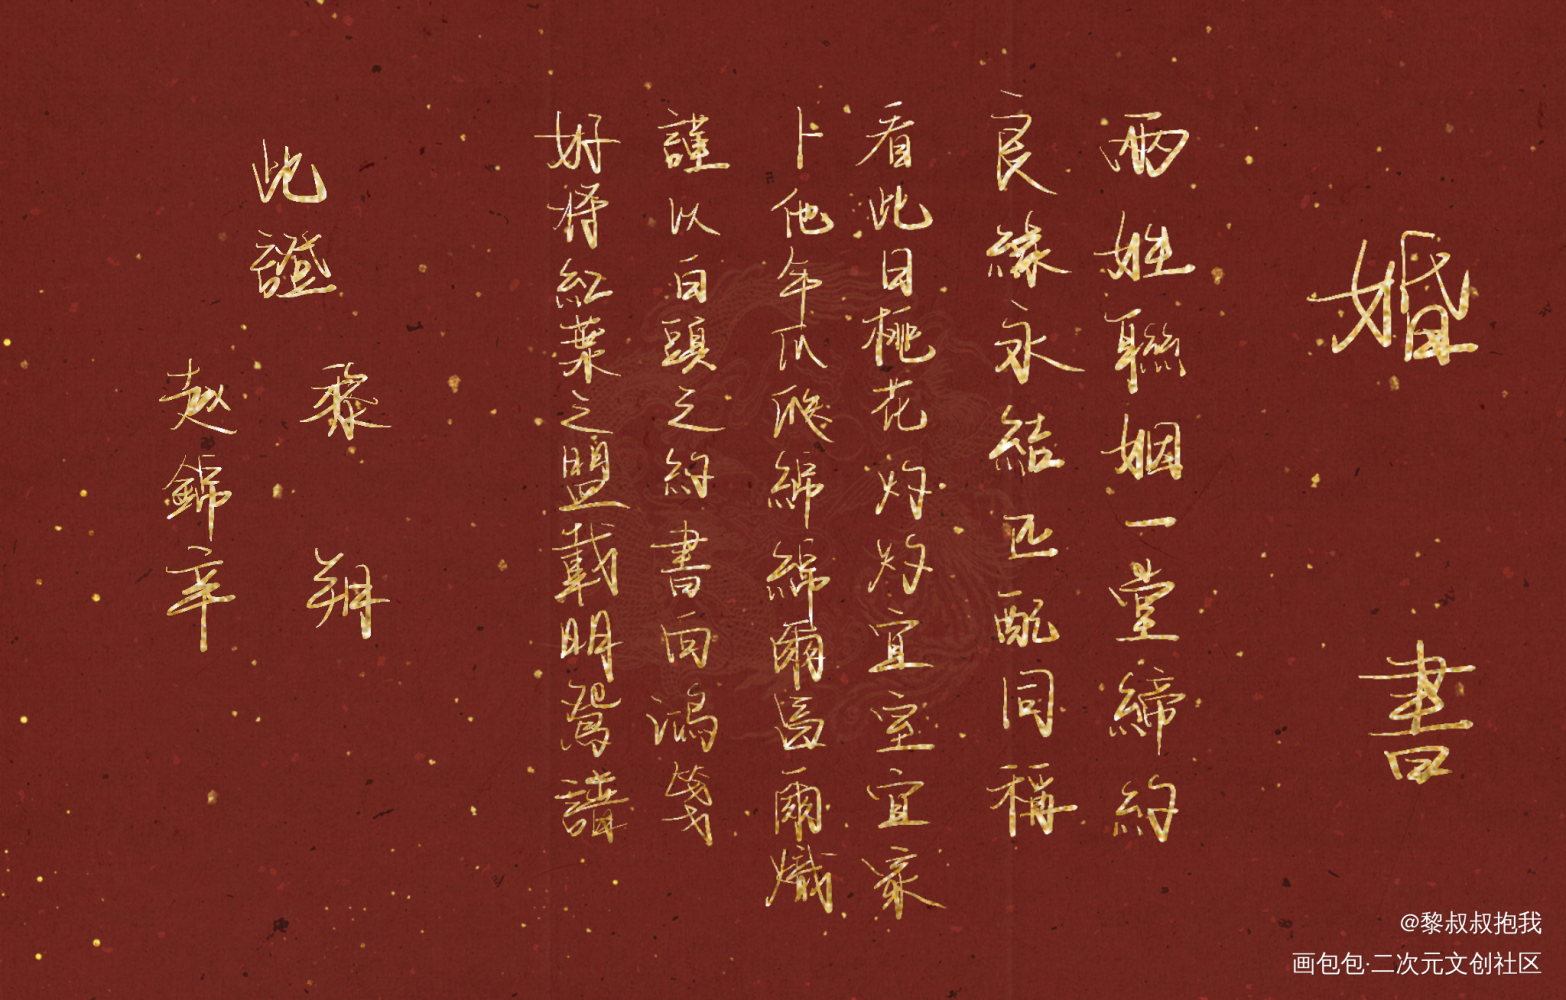 婚書
兩姓聯姻一堂締約
良緣永結匹配同稱
看此日桃花灼灼宜室宜家
卜他年瓜瓞綿綿爾昌爾熾
謹以白頭之約書向鴻箋
好將紅葉之盟載明鴛譜
此證
黎朔
赵錦辛
@黎叔叔抱我
画包包·二次元文创社区